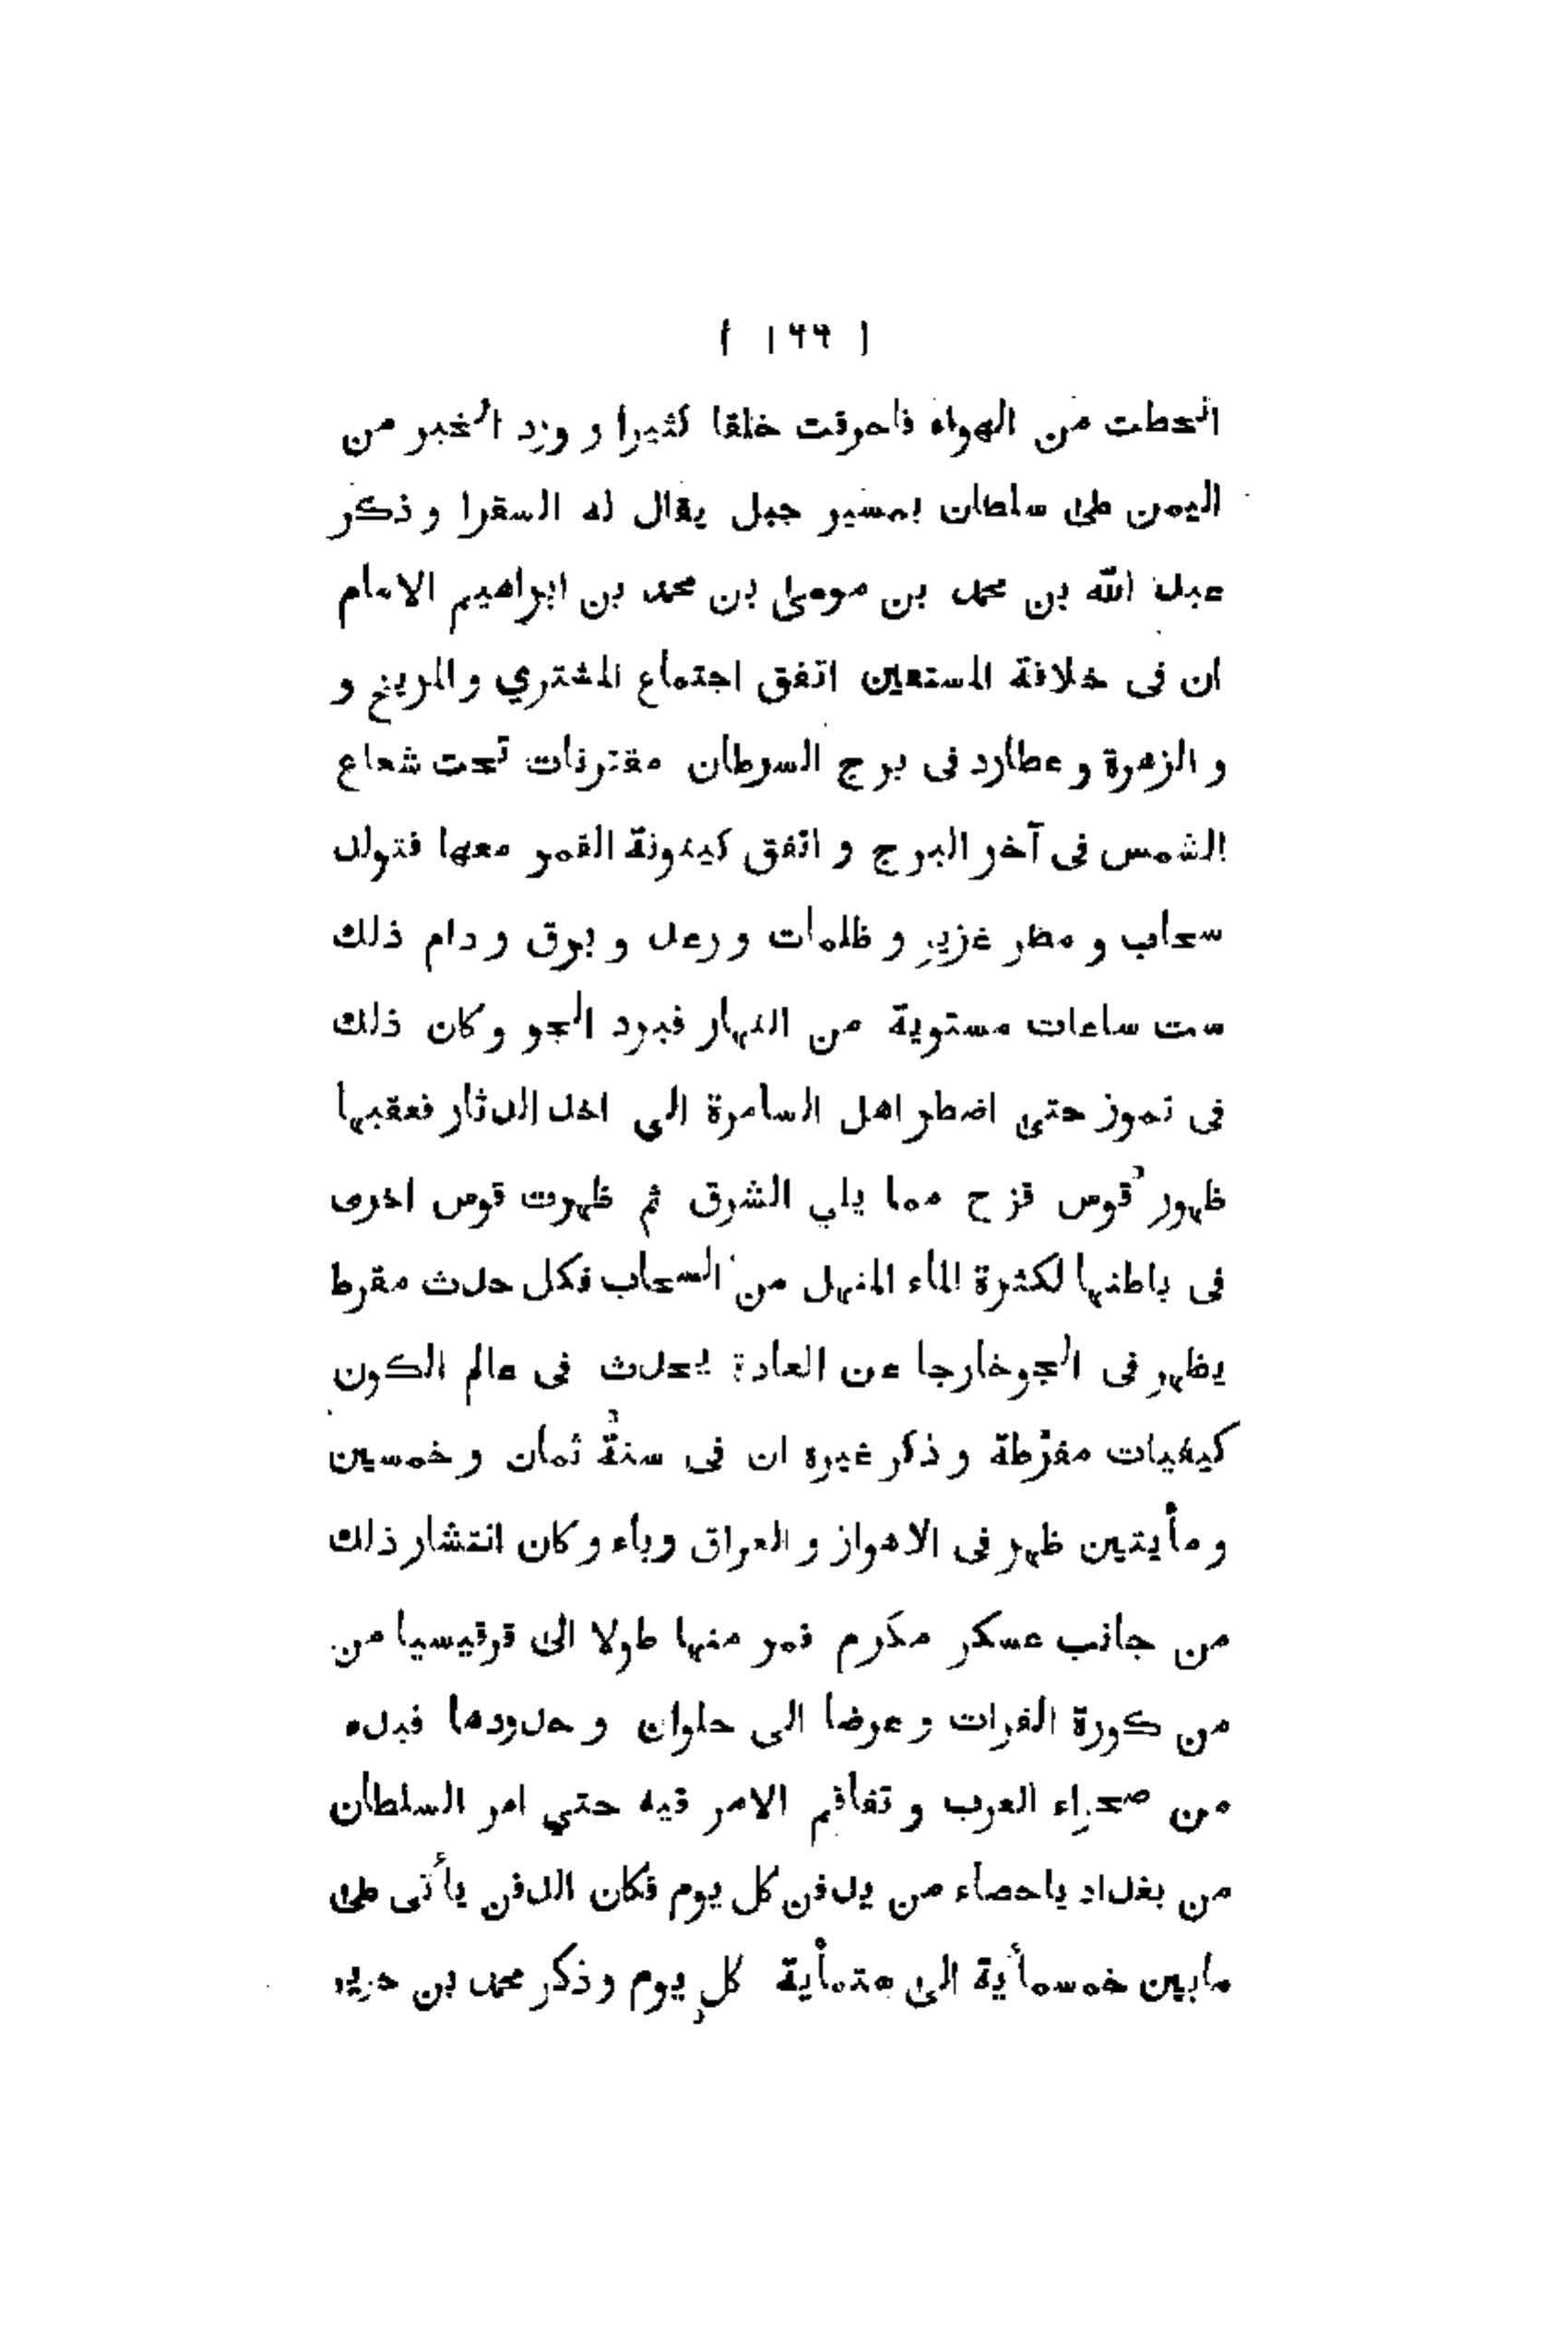 ( ١٦٦ )
انحطت من الهواء فاحرقت خلقا كثيرا و ورد الخبر من
اليمن على سلطان بمسير جبل يقال له السقرا و ذكر
عبد الله بن محمد بن موسى بن محمد بن ابراهيم الامام
ان فى خلافة المستعين اتفق اجتماع المشتري و المريخ و
و الزهرة و عطارد فى برج السرطان مقترنات تحت شعاع
الشمس فى آخر البرج و اتفق كينونة القمر معها فتولد
سحاب و مطر غزير و ظلمات و رعد و برق و دام ذلك
ست ساعات مستوية من النهار فبرد الجو و كان ذلك
فى تموز حتى اضطر اهل السامرة الى اخذ الدثار فعقبها
ظهور قوس قزح مما يلي الشرق ثم ظهرت قوس اخرى
فى باطنها لكثرة الماء المنهل من السحاب فكل حدث مفرط
يظهر فى الجو خارجا عن العادة يحدث فى عالم الكون
كيفيات مفرطة و ذكر غيره ان فى سنة ثمان و خمسين
و مأيتين ظهر فى الاهواز و العراق وباء و كان انتشار ذلك
من جانب عسكر مكرم فمر منها طولا الى قرقيسيا من
من كورة الفرات و عرضا الى حلوان و حدودها فبدء
من صحراء العرب و تفاقم الامر فيه حتي امر السلطان
من بغداد باحصاء من يدفن كل يوم فكان الدفن يأتى على
مابين خمسمأية الى ستمأية كل يوم و ذكر محمد بن